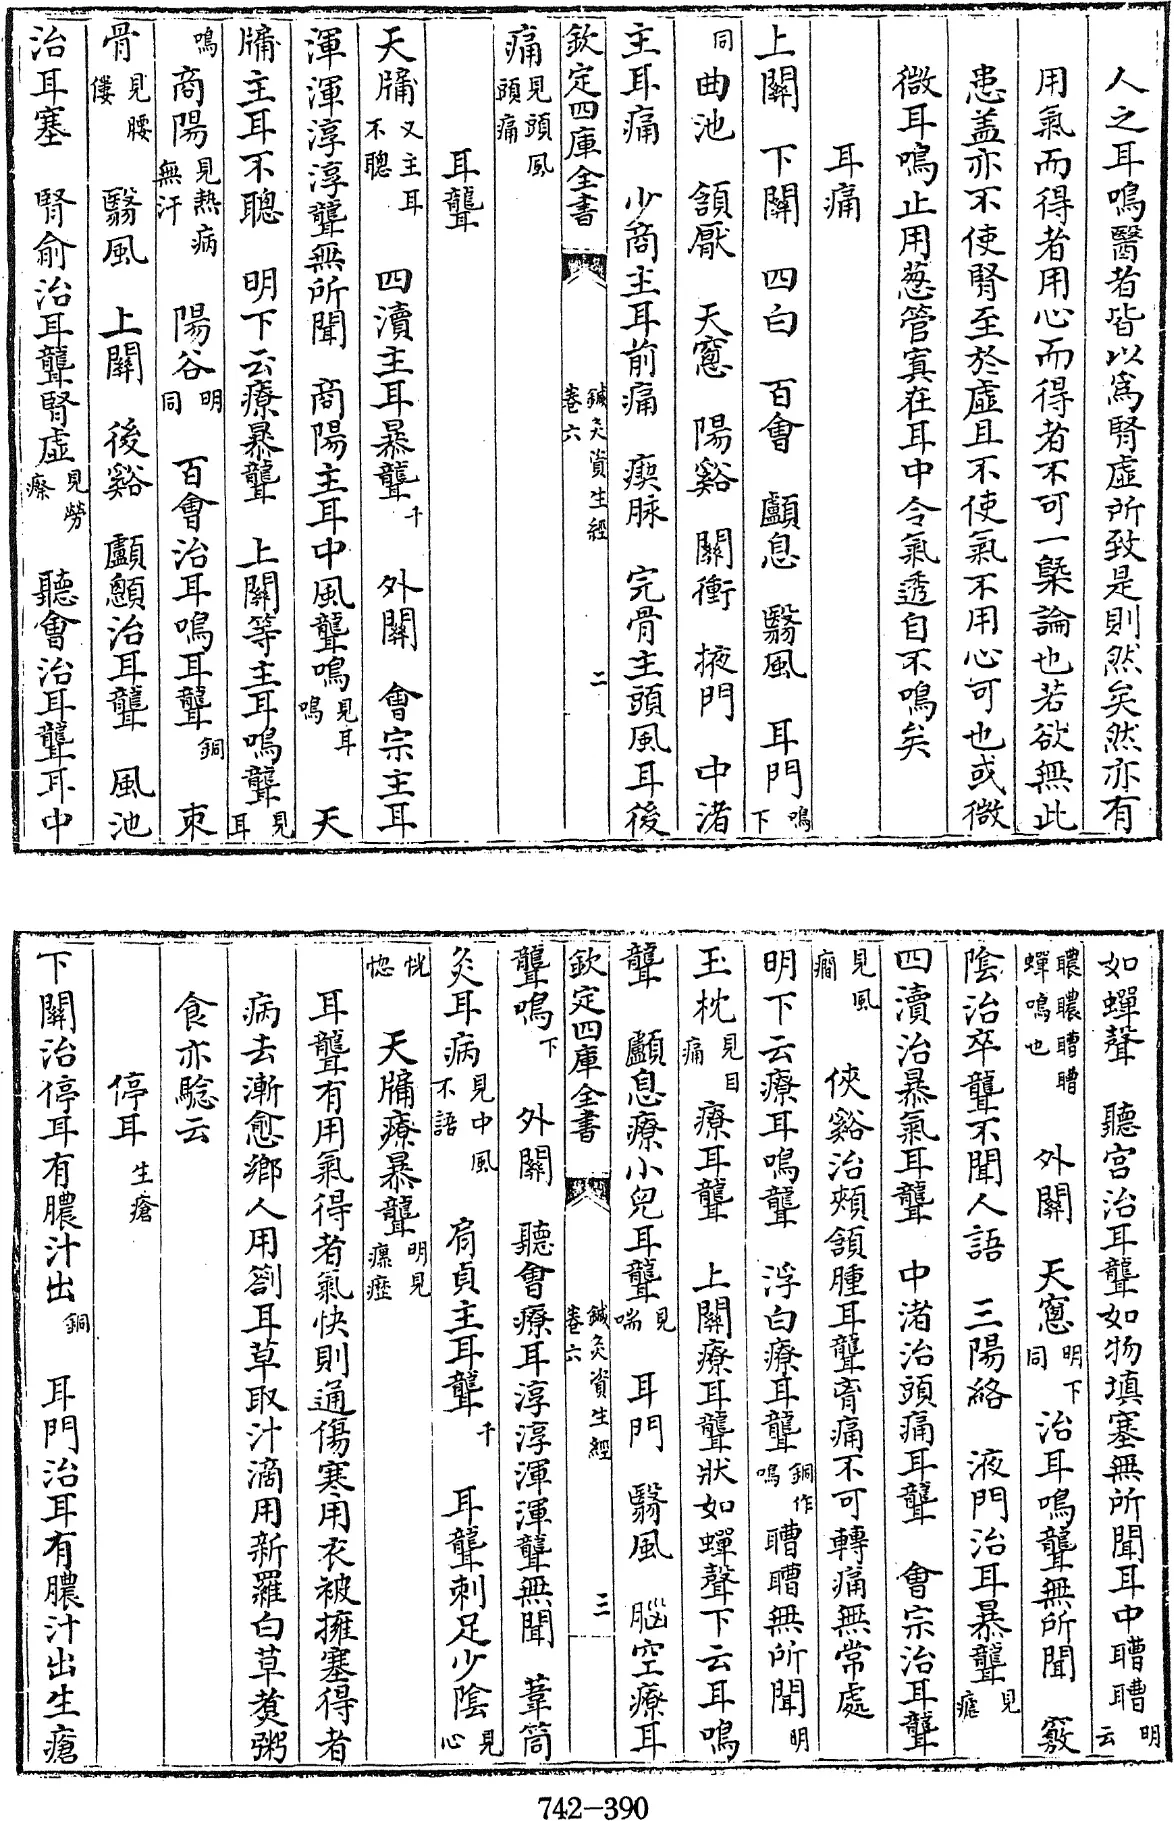 人之耳鳴醫者皆以爲腎虛所致是則然矣然亦有
用氣而得者用心而得者不可一槩論也若欲無此
患盖亦不使腎至於虛且不使氣不用心可也或微
微耳鳴止用葱管寘在耳中令氣透自不鳴矣
耳痛
上關 下關 四白 百會 顱息 翳風 耳門鳴下
同曲池 頷厭 天窻 陽谿 關衝 掖門 中渚
主耳痛 少商主耳前痛 瘈脉 完骨主頭風耳後
欽定四庫全書 鍼灸資生經卷六 二
痛見頭風頭痛
耳聾
天牖又主耳不聰 四瀆主耳暴聾千 外關 會宗主耳
渾渾淳淳聾無所聞 商陽主耳中風聾鳴見耳鳴 天
牖主耳不聰 明下云療暴聾 上關等主耳鳴聾見耳
鳴商陽見熱病無汗 陽谷明同 百會治耳鳴耳聾銅 束
骨見腰僂 翳風 上關 後谿 顱顖治耳聾 風池
治耳塞 腎俞治耳聾腎虛見勞瘵 聽會治耳聾耳中
如蟬聲 聽宫治耳聾如物填塞無所聞耳中聹聹明云
聹聹嘈嘈蟬鳴也 外關 天窻明下同治耳鳴聾無所聞 竅
陰治卒聾不聞人語 三陽絡 液門治耳暴聾見瘧
四瀆治暴氣耳聾 中渚治頭痛耳聾 會宗治耳聾
見風癎 俠谿治頰頷腫耳聾胷痛不可轉痛無常處
明下云療耳鳴聾 浮白療耳聾銅作鳴嘈嘈無所聞明
玉枕見目痛 療耳聾 上關療耳聾狀如蟬聲下云耳鳴
聾 顱息療小兒耳聾見喘 耳門 翳風 腦空療耳
欽定四庫全書 鍼灸資生經卷六 三
聾鳴下 外關 聽會療耳淳淳渾渾聾無聞 葦筒
灸耳病見中風不語 肩貞主耳聾千 耳聾刺足少陰見心
恍惚 天牖療暴聾明見瘰癧
耳聾有用氣得者氣快則通傷寒用衣被擁塞得者
病去漸愈鄉人用劄耳草取汁滴用新羅白草煑粥
食亦驗云
停耳生瘡
下關治停耳有膿汁出銅 耳門治耳有膿汁出生瘡
742-390